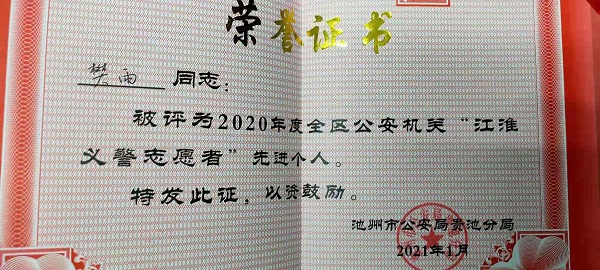 荣誉证书
樊雨 同志：
被评为2020年度全区公安机关“江淮
义警志愿者”先进个人。
特发此证，以资鼓励。
池州市公安局贵池分局
2021年1月